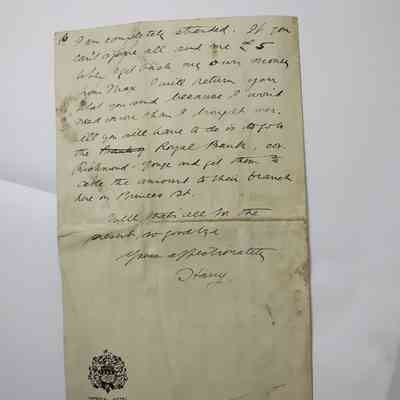 I am completely stranded. If you
can't spare all send me £5
When I get back my own money
from Max I will return you
what you send because I won't
need more than I brought over.
All you will have to do is to go to
the Royal Bank, cor.
Richmond - Yonge and get them to
cable the amount to their branch
here on Princes St.
Well thats all for the
present, so goodbye
Yours affectionately
Harry